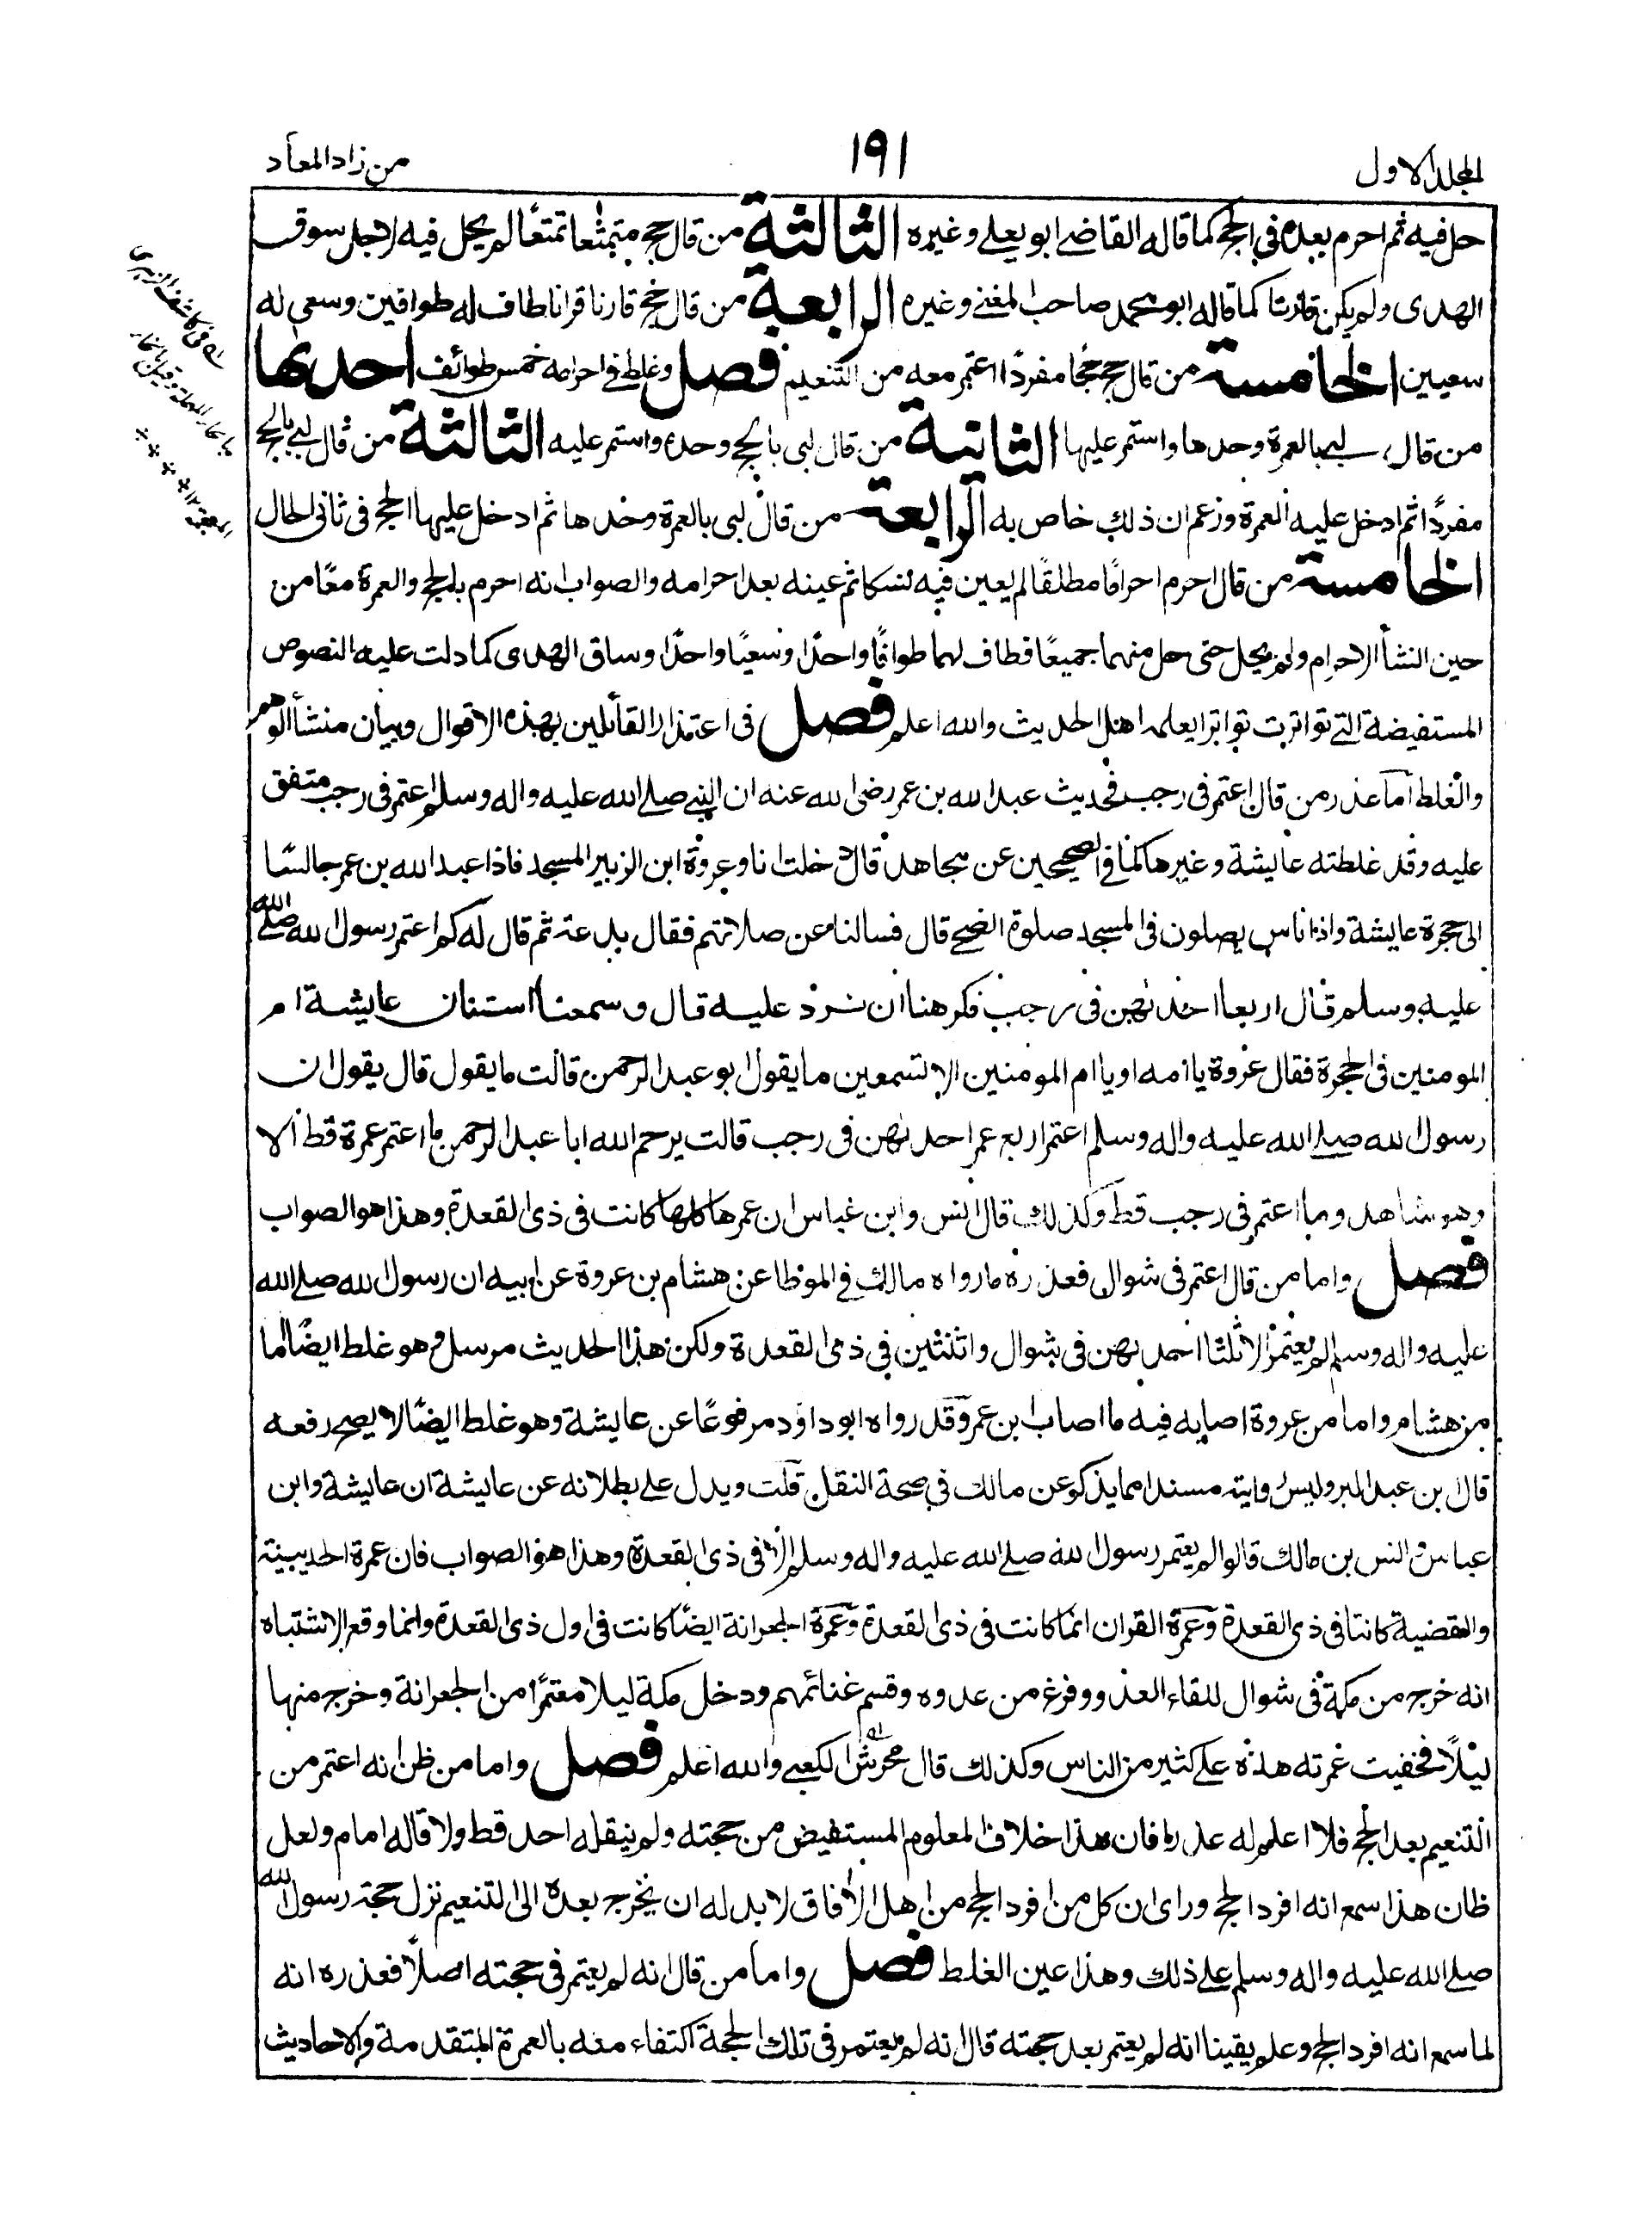 المجلد الاول
١٩١
من زاد المعاد
حل فيه ثم احرم بعده في الحج كما قاله القاضي ابو يعلى وغيره الثالثة من قال حج متمتعا تمتعا لم يحل فيه لاجل سوق
الهدى ولم يكن قارنا كما قاله ابو محمد صاحب المغني وغيره الرابعة من قال حج قارنا قرانا طاف له طوافين وسعى له
سعيين الخامسة من قال حج حجا مفردا اعتمر معه من التنعيم فصل وغلط في احرامه خمس طوائف احدها
من قال لبى بالعمرة وحدها واستمر عليها الثانية من قال لبى بالحج وحده واستمر عليه الثالثة من قال لبى بالحج
مفردًا ثم ادخل عليه العمرة وزعم ان ذلك خاص به الرابعة من قال لبى بالعمرة وحدها ثم ادخل عليها الحج فى ثانى الحال
الخامسة من قال احرم احرامًا مطلقًا لم يعين فيه نسكا ثم عينه بعد احرامه والصواب انه احرم بالحج والعمرة معًا من
حين انشأ الاحرام ولم يحل حتى حل منهما جميعًا فطاف لهما طوافًا واحدًا وسعيًا واحدًا وساق الهدى كما دلت عليه النصوص
المستفيضة التي تواترت تواترا يعلمه اهل الحديث والله اعلم فصل فى اعتذار القائلين بهذه الاقوال وبيان منشأ الوهم
والغلط اما عذر من قال اعتمر فى رجب فحديث عبد الله بن عمر رضى الله عنه ان النبي صلى الله عليه واله وسلم اعتمر فى رجب متفق
عليه وقد غلطته عايشة وغيرها كما في الصحيحين عن مجاهد قال دخلت انا وعروة ابن الزبير المسجد فاذا عبد الله بن عمر جالسًا
الى حجرة عايشة واذا ناس يصلون فى المسجد صلوة الضحى قال فسالناه عن صلاتهم فقال بدعة ثم قال له كم اعتمر رسول الله صلى الله
عليه وسلم قال اربعا احدٰهن فى رجب فكرهنا ان نرد عليه قال وسمعنا استنان عايشة ام
المومنين فى الحجرة فقال عروة يا امه او يا ام المومنين الا تسمعين ما يقول ابو عبد الرحمن قالت ما يقول قال يقول ان
رسول الله صلى الله عليه واله وسلم اعتمر اربع عمر احدٰهن فى رجب قالت يرحم الله ابا عبد الرحمن ما اعتمر عمرة قط الا
وهو شاهد وما اعتمر فى رجب قط وكذلك قال انس وابن عباس ان عمرها كلها كانت فى ذى القعدة وهذا هو الصواب
فصل واما من قال اعتمر فى شوال فعذره ما رواه مالك في الموطا عن هشام بن عروة عن ابيه ان رسول الله صلى الله
عليه واله وسلم لم يعتمر الا ثلثا احدٰهن فى شوال واثنتين فى ذى القعدة ولكن هذا الحديث مرسل وهو غلط ايضًا اما
من هشام واما من عروة اصابه فيه ما اصاب ابن عمر وقد رواه ابو داؤد مرفوعًا عن عايشة وهو غلط ايضًا لا يصح رفعه
قال ابن عبد البر وليس روايته مسندا مما يذكر عن مالك فى صحة النقل قلت ويدل على بطلانه عن عايشة ان عايشة وابن
عباس وانس بن مالك قالوا لم يعتمر رسول الله صلى الله عليه واله وسلم الا فى ذى القعدة وهذا هو الصواب فان عمرة الحديبية
والقضية كانتا فى ذى القعدة وعمرة القران انما كانت فى ذى القعدة وعمرة الجعرانة ايضًا كانت فى اول ذى القعدة وانما وقع الاشتباه
انه خرج من مكة فى شوال للقاء العدو وفرغ من عدوه وقسم غنائمهم ودخل مكة ليلا معتمرًا من الجعرانة وخرج منها
ليلًا فخفيت عمرته هذه على كثير من الناس وكذلك قال محرش الكعبي والله اعلم فصل واما من ظن انه اعتمر من
التنعيم بعد الحج فلا اعلم له عذرا فان هذا خلاف المعلوم المستفيض من حجته ولم ينقله احد قط ولا قاله امام ولعل
ظان هذا سمع انه افرد الحج وراى ان كل من افرد الحج من اهل الآفاق لا بد له ان يخرج بعده الى التنعيم نزل حجة رسول الله
صلى الله عليه واله وسلم على ذلك وهذا عين الغلط فصل واما من قال انه لم يعتمر فى حجته اصلًا فعذره انه
لما سمع انه افرد الحج وعلم يقينا انه لم يعتمر بعد حجته قال انه لم يعتمر فى تلك الحجة اكتفاء منه بالعمرة المتقدمة والاحاديث